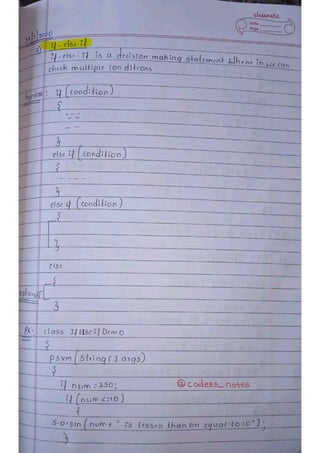 classmate
Date
Page
2) if-else-if
if-else if is a decision making statement where in we can
check multiple conditions
Syntax: if (condition)
{
- - -
- -
}
else if (condition)
{
- - - -
}
else if (condition)
{
}
else
{
}
Ex-. class IfElseIfDemo
{
psvm (String [] args)
{
if num = 250;
@coders_notes
if (num <=10)
{
s.o.pln (num + " is lesser than or equal to 10");
}